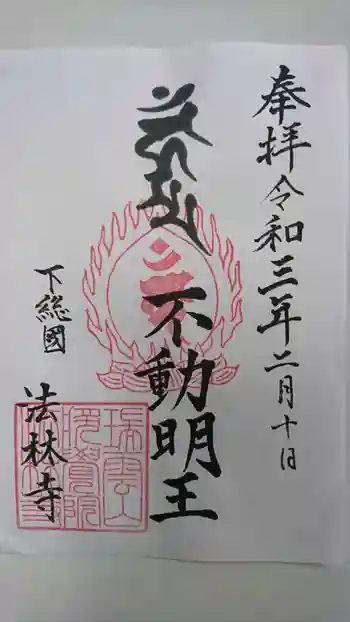 奉拝令和三年二月十日
不動明王
下総國
法林寺